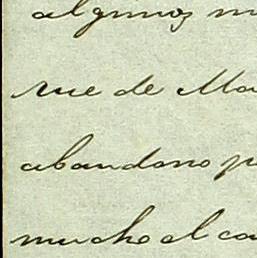 algunos m
rue de Ma
abandono p
mucho el co